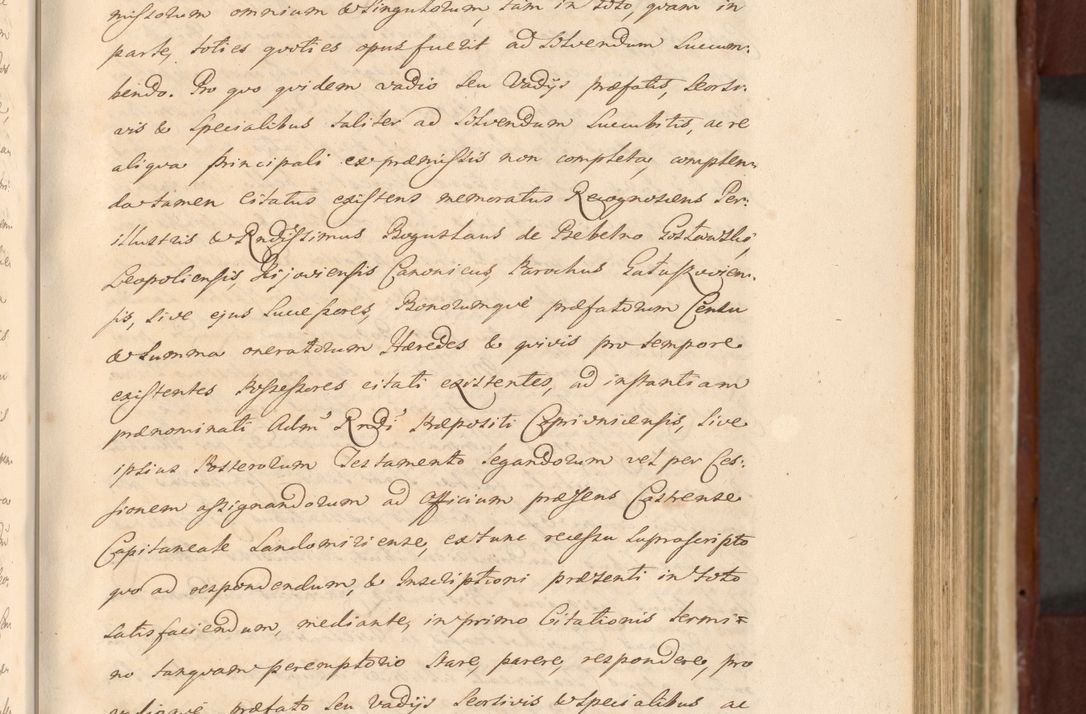 missorum omnium & singulorum, tam in toto, quam in
parte, toties quoties opus fuerit ad solvendum succum:
bendo. Pro quo quidem vadio seu Vadijs præfatis, seorsi:
vis & specialibus taliter ad solvendum succubitis, ac re
aliqua principali ex præmissis non completa, complen:
da tamen Citatus existens memoratus Recognoscens Per:
illustris & Rndissimus Boguslaus de Bebelno
Leopoliensis, Kijoviensis Canonicus, Parochus
sis, sive ejus Sucessores, Bonorumque præfatorum Censu
& Summa oneratorum Hæredes & quivis pro tempore
existentes Possessores citati existentes, ad instantiam
prænominati Adm Rndi Præpositi sive
ipsius Posterorum Testamento legandorum vel per Ces:
sionem assignandorum ad Officium præsens Castrense
Capitaneale Sandomiriense, ex tunc recessu suprascripto
quo ad respondendum, & Inscriptioni præsenti in toto
satisfaciendum, mediante, in primo Citationis termi=
no tanquam peremptorio stare, parere, respondere, pro
præfato seu vadijs seorsivis & specialibus ac